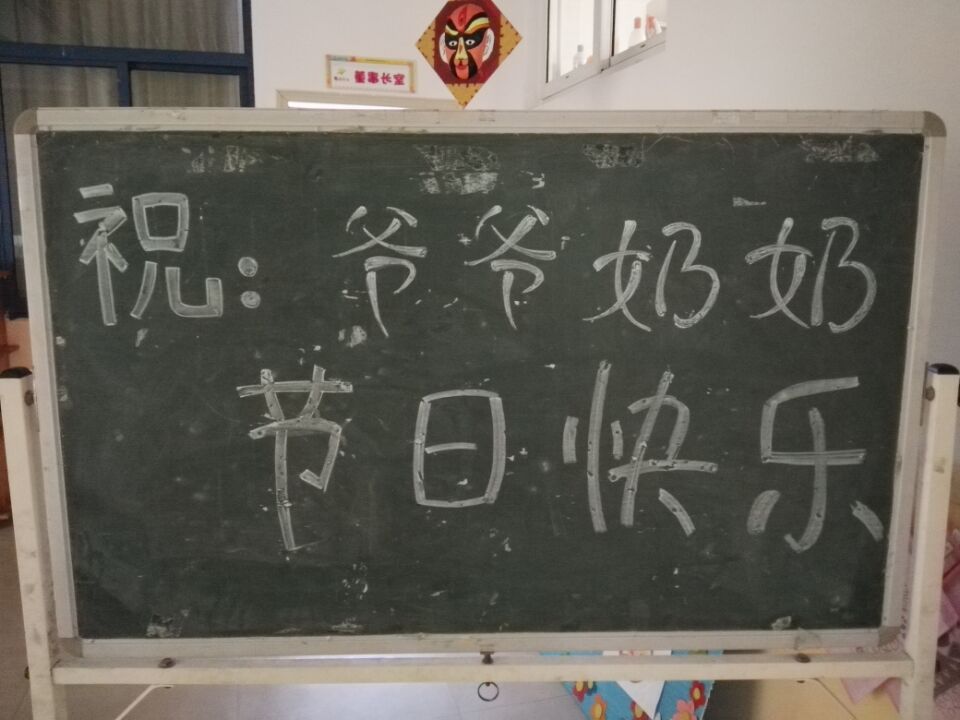 董事长室
祝：爷爷奶奶
节日快乐